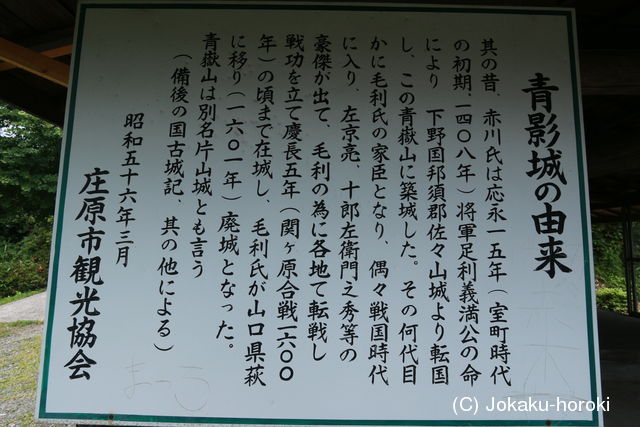 青影城の由来
其の昔、赤川氏は応永一五年（室町時代
の初期、一四〇八年）将軍足利義満公の命
により　下野国那須郡佐々山城より転国
し、この青嶽山に築城した。その何代目
かに毛利氏の家臣となり、偶々戦国時代
に入り、左京亮、十郎左衛門之秀等の
豪傑が出て、毛利の為に各地て転戦し
戦功を立て慶長五年（関ヶ原合戦一六〇〇
年）の頃まで在城し、毛利氏が山口県萩
に移り（一六〇一年）廃城となった。
青嶽山は別名片山城とも言う
（備後の国古城記、其の他による）
昭和五十六年三月
庄原市観光協会
(C) Jokaku-horoki